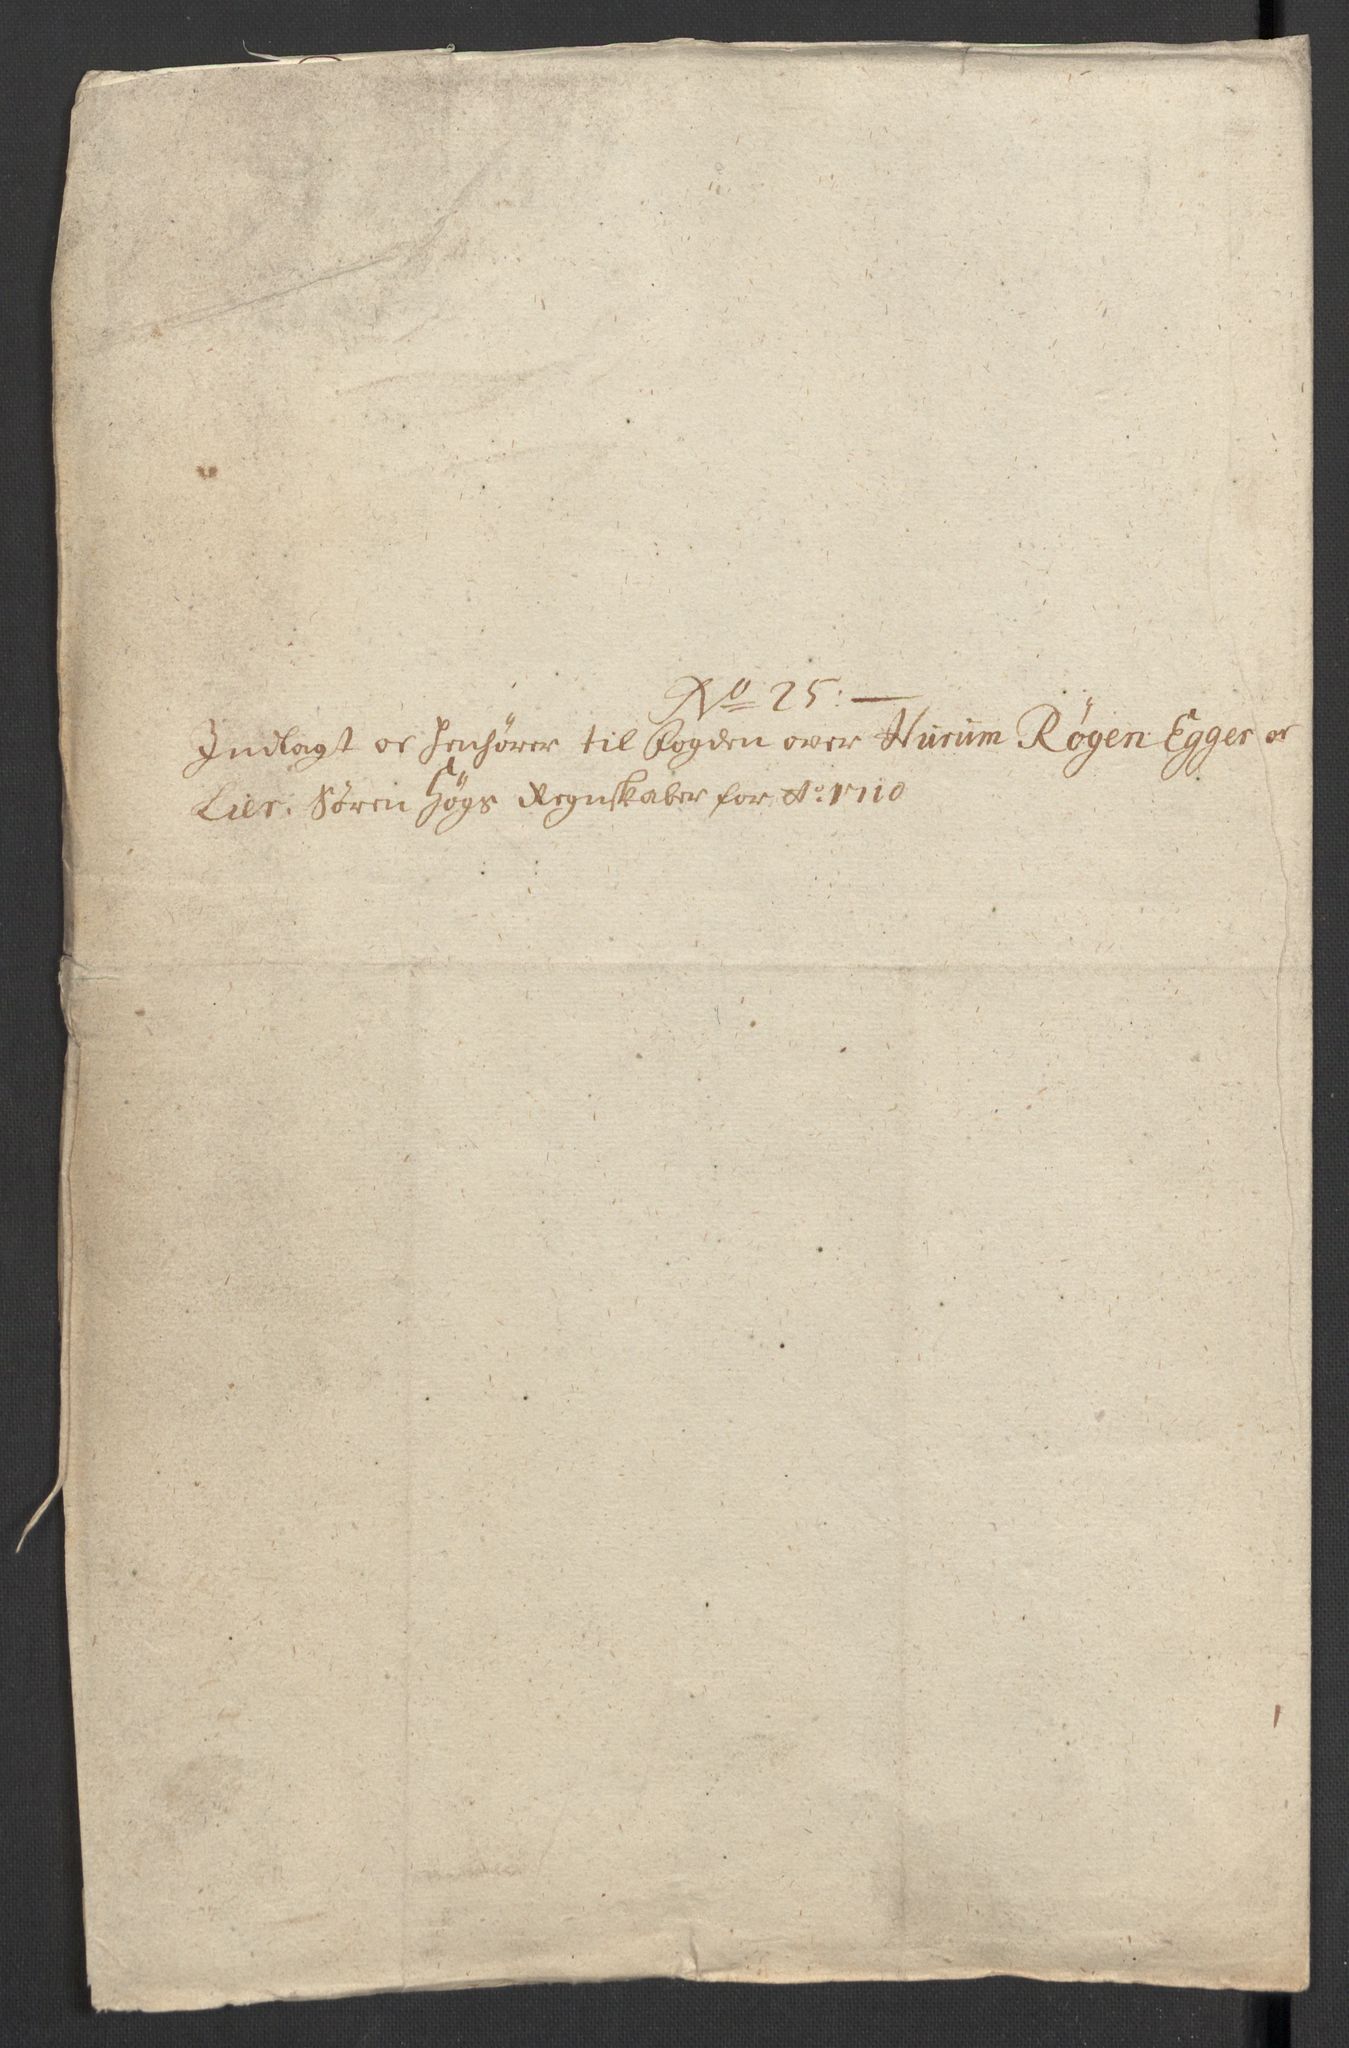 No 25:
Indlagt oc henhører til fogden over Hurum Røgen Egger oc
Lier. Søren Høgs Regnskaber for Ao: 1710